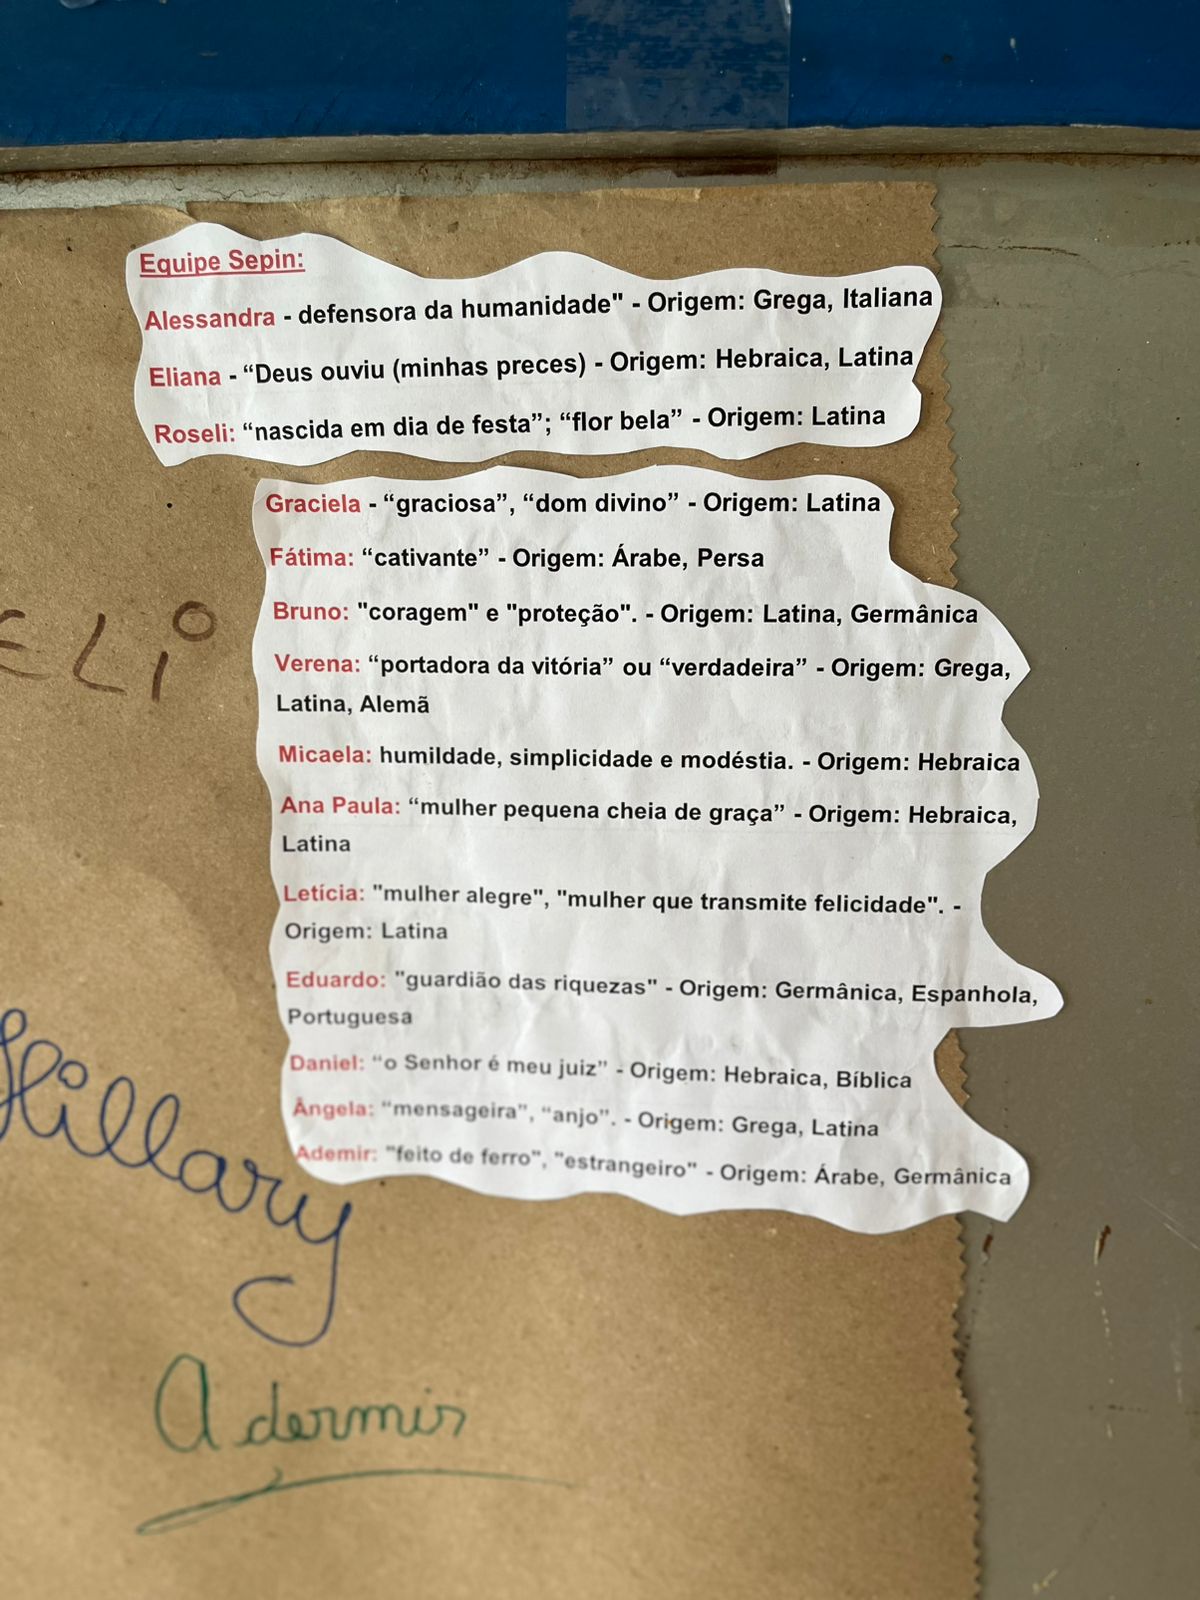 Equipe Sepin:
Alessandra - defensora da humanidade" - Origem: Grega, Italiana
Eliana - “Deus ouviu (minhas preces) - Origem: Hebraica, Latina
Roseli: “nascida em dia de festa”; “flor bela” - Origem: Latina
Graciela - “graciosa”, “dom divino” - Origem: Latina
Fátima: “cativante” - Origem: Árabe, Persa
Bruno: "coragem" e "proteção". - Origem: Latina, Germânica
Verena: “portadora da vitória” ou “verdadeira” - Origem: Grega,
Latina, Alemã
Micaela: humildade, simplicidade e modéstia. - Origem: Hebraica
Ana Paula: “mulher pequena cheia de graça” - Origem: Hebraica,
Latina
Letícia: "mulher alegre", "mulher que transmite felicidade". -
Origem: Latina
Eduardo: "guardião das riquezas" - Origem: Germânica, Espanhola,
Portuguesa
Daniel: “o Senhor é meu juiz” - Origem: Hebraica, Bíblica
Ângela: “mensageira”, “anjo”. - Origem: Grega, Latina
Ademir: "feito de ferro", "estrangeiro" - Origem: Árabe, Germânica
ELi
Hillary
Adermir